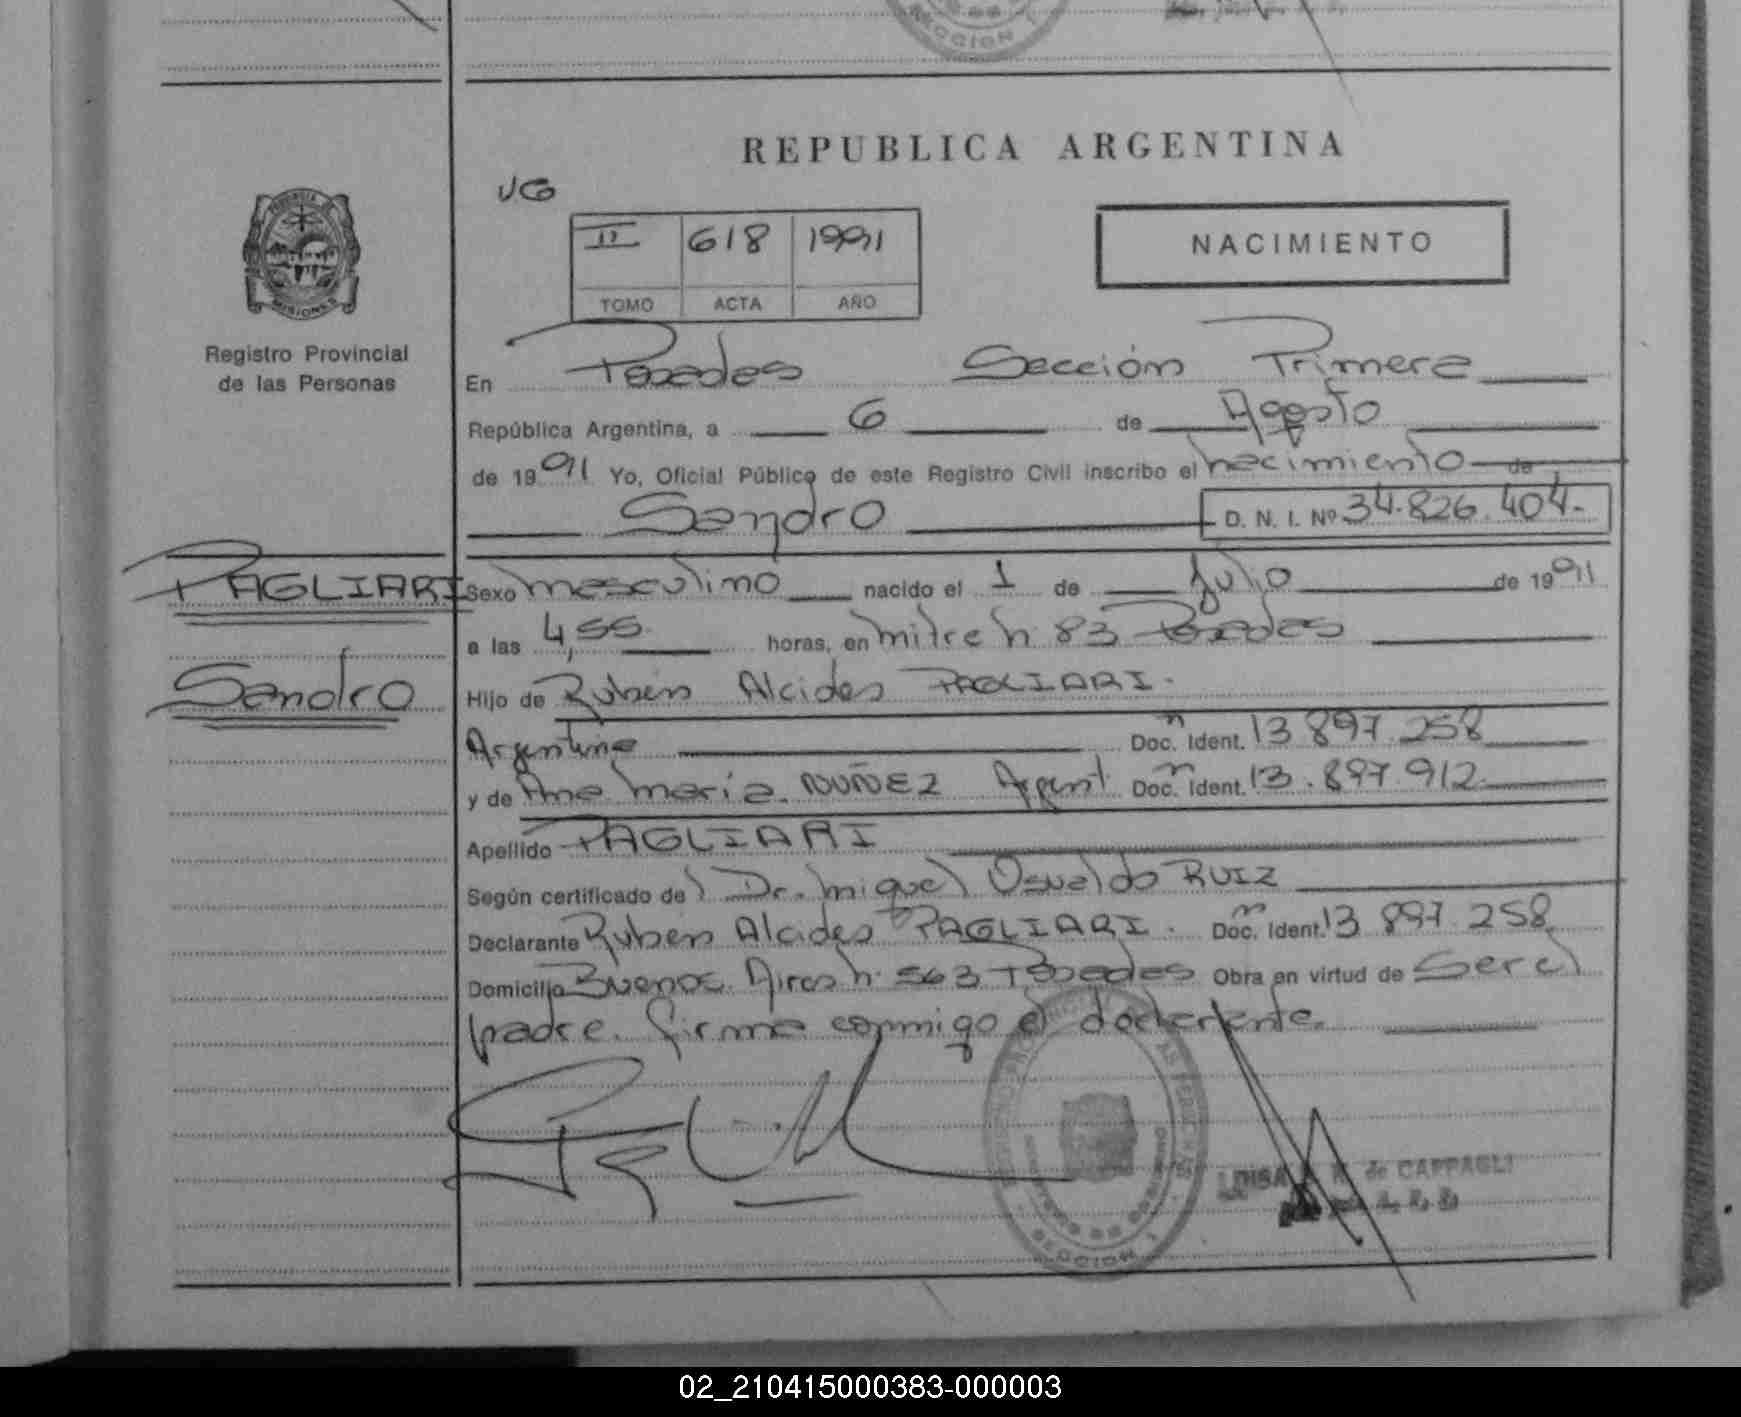 SECCION 1
REPUBLICA ARGENTINA
UG
II 618 1991
TOMO ACTA AÑO
NACIMIENTO
MISIONES
Registro Provincial
de las Personas
En Posadas Sección Primera
República Argentina, a 6 de Agosto
de 1991 Yo, Oficial Público de este Registro Civil inscribo el nacimiento de
Sandro D. N. I. Nº 34.826.404.-
PAGLIARI
Sandro
Sexo masculino nacido el 1 de Julio de 1991
a las 4,55 horas, en mitre n 83 Posadas
Hijo de Ruben Alcides PAGLIARI.
Argentino Doc. Ident. 13 897.258
y de Ana María NUÑEZ Argent. Doc. Ident. 13.897.912
Apellido PAGLIARI
Según certificado del Dr. Miguel Osvaldo RUIZ
Declarante Ruben Alcides PAGLIARI. Doc. Ident. 13 897.258
Domicilio Buenos Aires n 563 Posadas Obra en virtud de Ser el
padre. firma conmigo el declarante.
SECCION 1
LUISA de CAPPAGLI
02_210415000383-000003